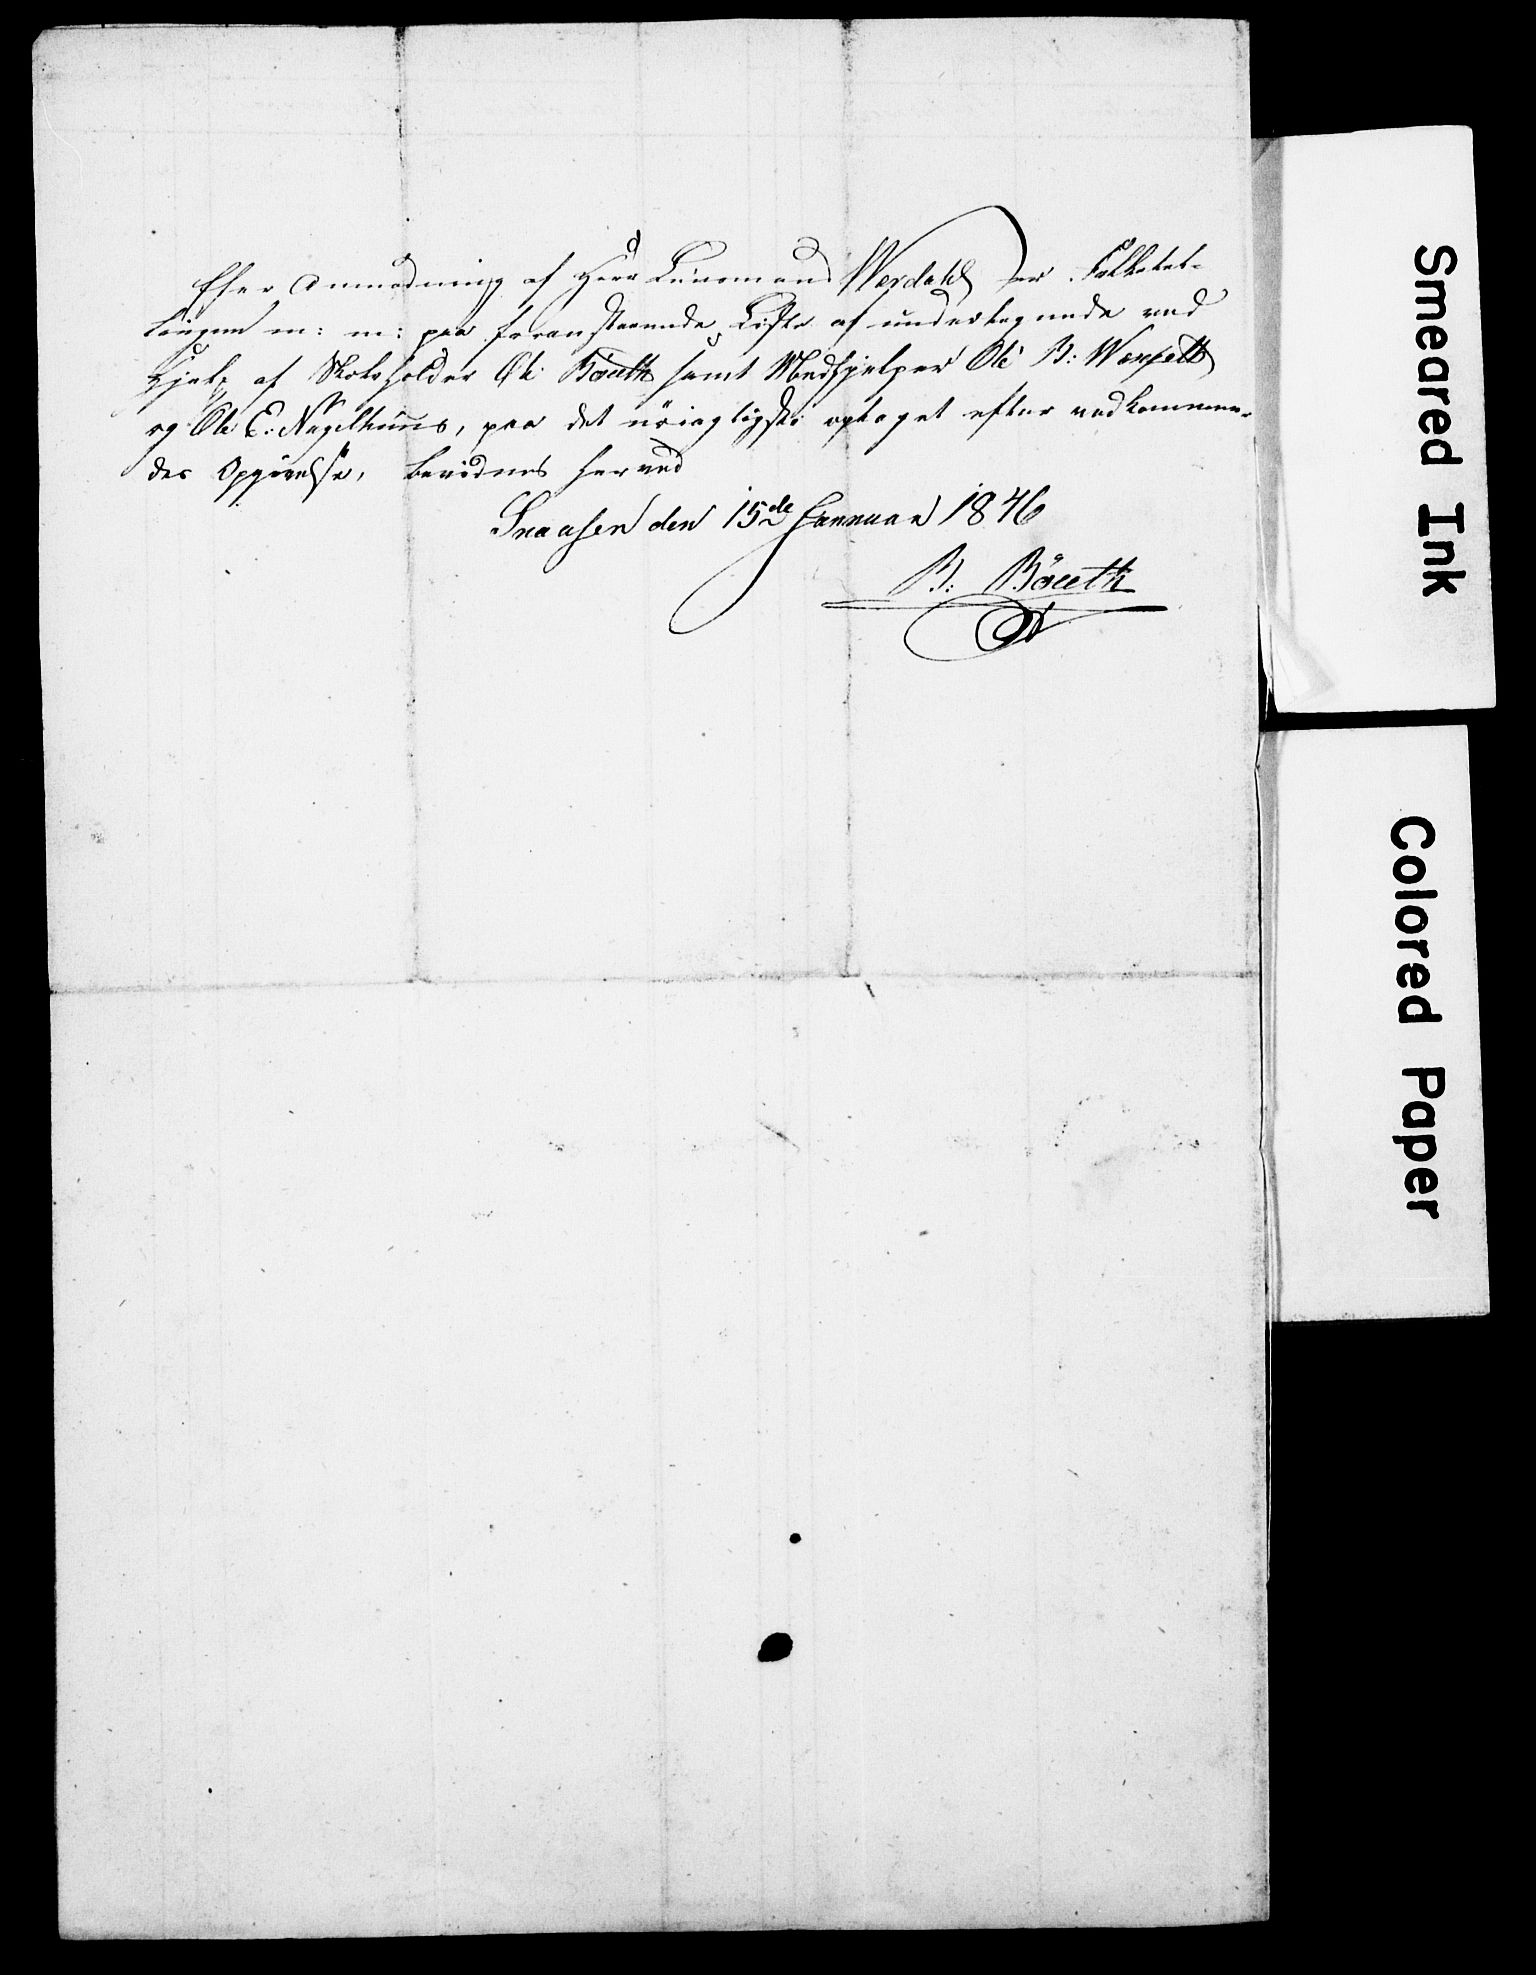 Efter Anmodning af Herr Lensmand Werdahl er Folketæl-
lingen m: m: paa foranstaaende Liste af undertegnede ved
Hjelp af Skoleholder Ole Böeth samt Medhjelper Ole B:
og Ole E: Nagelhuus, paa det nöiagtigste optaget efter vedkommen-
des Opgivelse, bevidnes herved
Snaasen den 15de Januar 1846
B: Böeth
Smeared Ink
Colored Paper